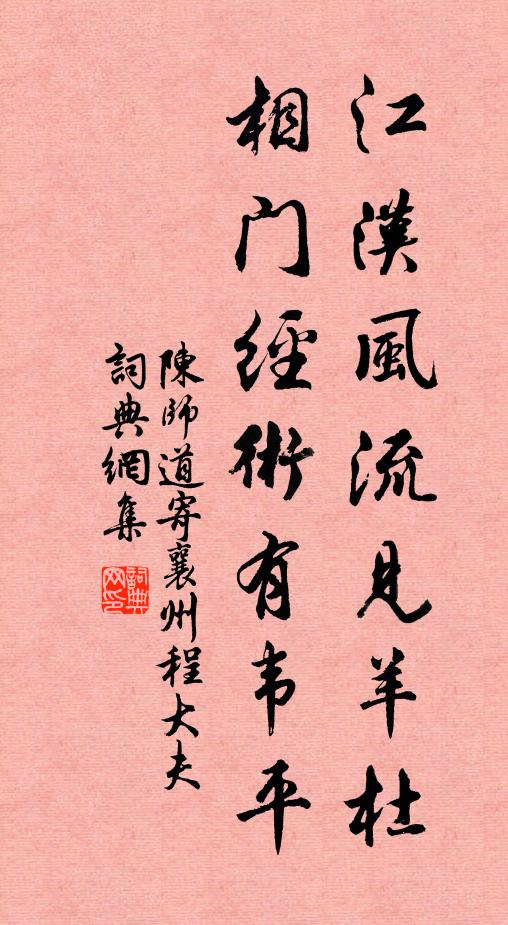 江漢風流見羊杜
相门經術有韦平
陳師道寄襄州程大夫
詞典網集
詞典网印